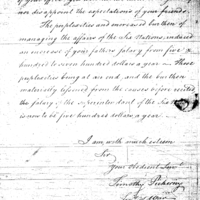 nor disappoint the expectations of your friends.
The perplexities and increased burthen of
managing the affairs of the Six Nations, induced
an increase of your father's salary from five
hundred to seven hundred dollars a year. Those
perplexities being at an end, and the burthen
materially lessened from the causes before recited
the salary of the superintendent of the Six
is now to be five hundred dollars a year.
I am with much esteem
Sir
Your Obedient Servt
Timothy Pickering